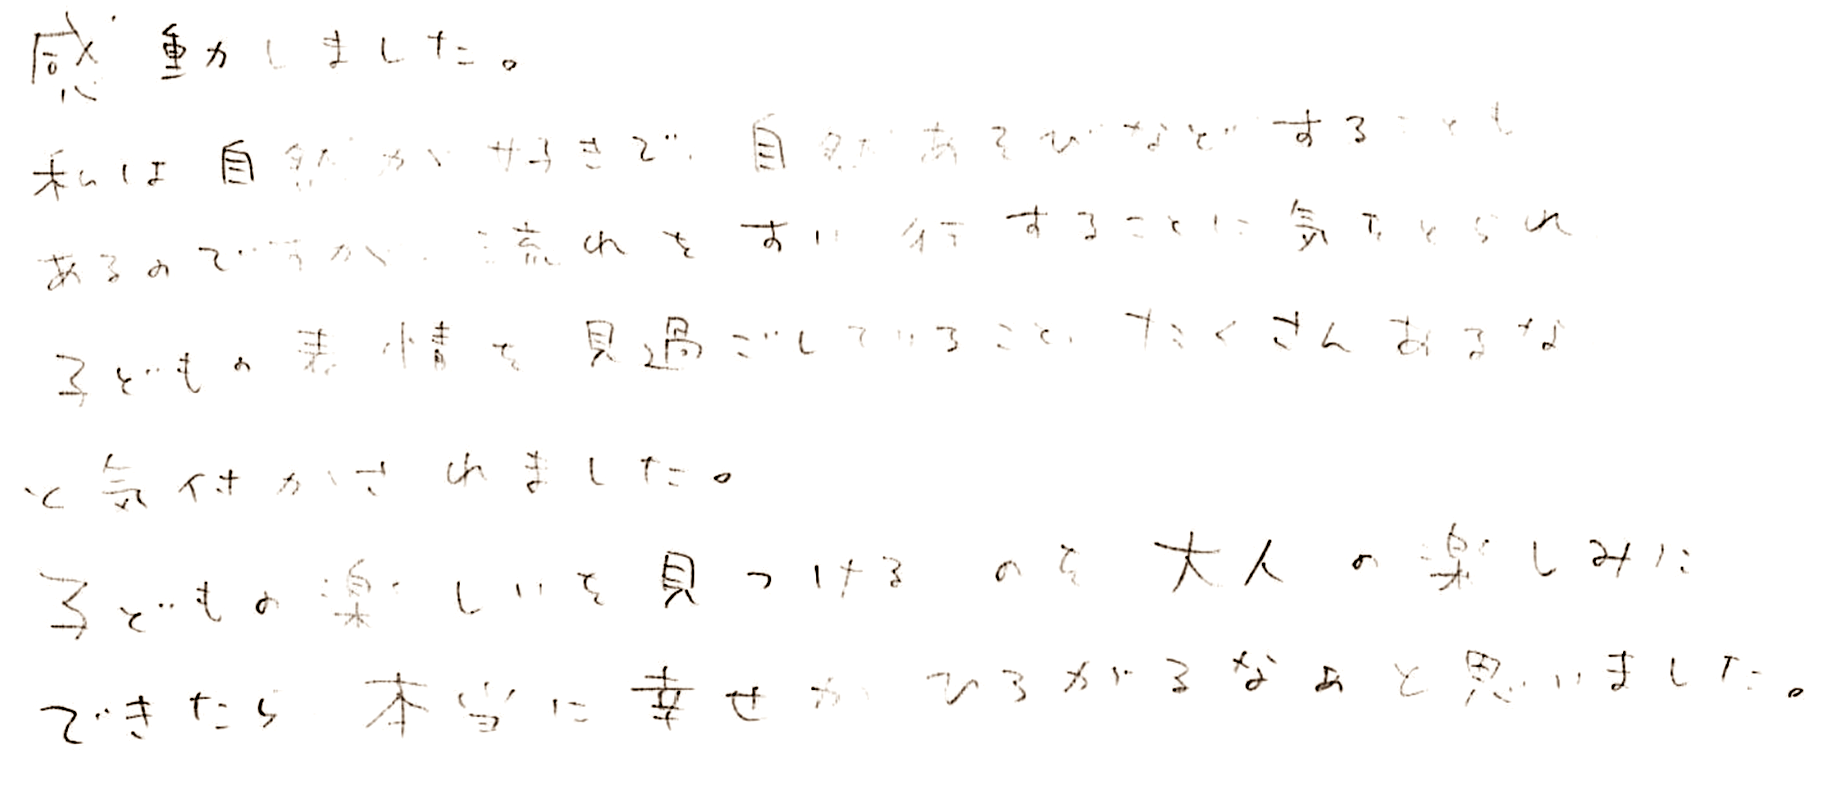 感動しました。
私は自然が好きで、自然あそびなどすることも
あるのですが、流れをすい行することに気をとられ
子どもの表情を見過ごしていること、たくさんあるな
と気付かされました。
子どもの楽しいを見つけるのを大人の楽しみに
できたら本当に幸せがひろがるなぁと思いました。